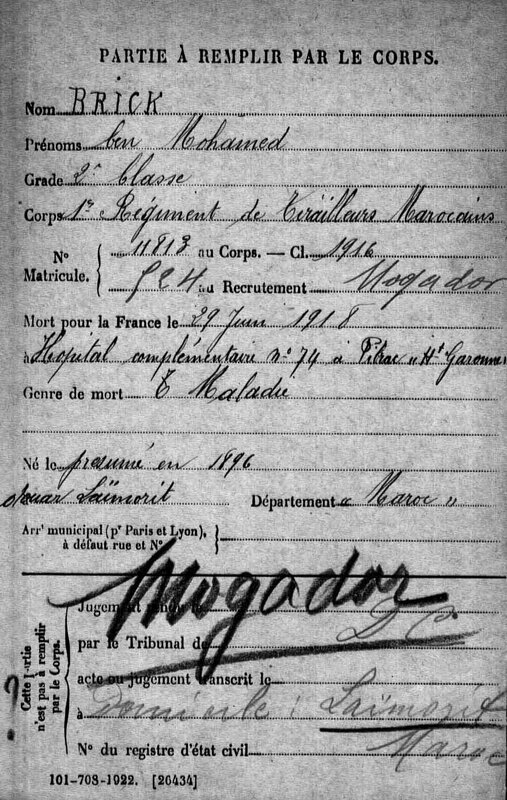 PARTIE À REMPLIR PAR LE CORPS.
Nom BRICK
Prénoms ben Mohamed
Grade 2e Classe
Corps 1er Régiment de Tirailleurs Marocains
N° Matricule. { 11813 au Corps. — Cl. 1916
au Recrutement Mogador
Mort pour la France le 29 Juin 1918
à Hopital complémentaire n° 74 à "Hte Garonne
Genre de mort Maladie
Né le présumé en 1896
douar Laïmorit Département " Maroc "
Arrt municipal (pr Paris et Lyon),
à défaut rue et N°
Mogador
Jugement rendu le
par le Tribunal de
acte ou jugement transcrit le
à Domicile : Laïmorit
Maroc
N° du registre d'état civil
Cette partie n'est pas à remplir par le Corps.
?
101-708-1922. [26434]